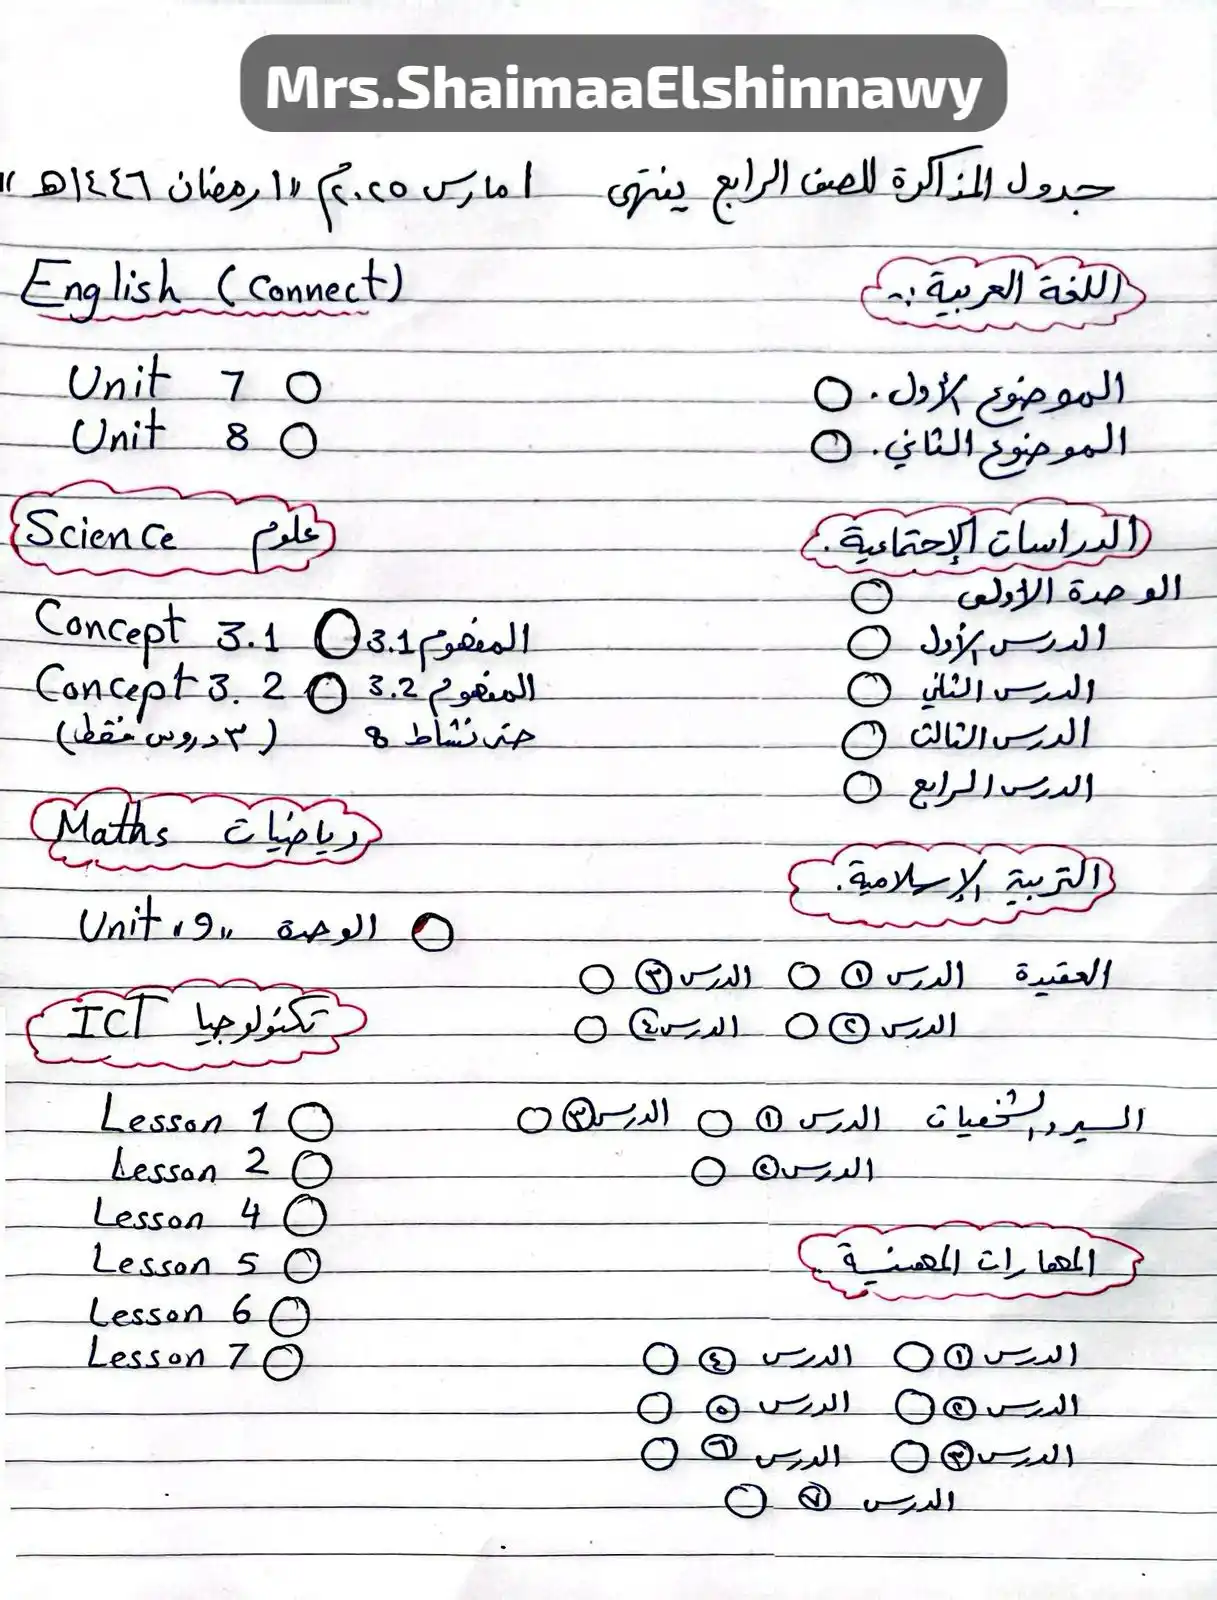 Mrs.ShaimaaElshinnawy
جدول المذاكرة للصف الرابع ينتهى ١ مارس ٢٠٢٥م "١ رمضان ١٤٤٦هـ"
اللغة العربية :-
الموضوع الأول .
الموضوع الثاني .
الدراسات الإجتماعية .
الوحدة الاولى
الدرس الأول
الدرس الثاني
الدرس الثالث
الدرس الرابع
التربية الإسلامية .
العقيدة الدرس ١ الدرس ٣
الدرس ٢ الدرس ٤
السير والشخصيات الدرس ١ الدرس ٣
الدرس ٢
المهارات المهنية .
الدرس ١ الدرس ٤
الدرس ٢ الدرس ٥
الدرس ٣ الدرس ٦
الدرس ٧
English (Connect)
Unit 7
Unit 8
Science علوم
Concept 3.1 المفهوم 3.1
Concept 3.2 المفهوم 3.2
حتى نشاط 8 (٣ دروس فقط)
Maths رياضيات
Unit "9" الوحدة
ICT تكنولوجيا
Lesson 1
Lesson 2
Lesson 4
Lesson 5
Lesson 6
Lesson 7